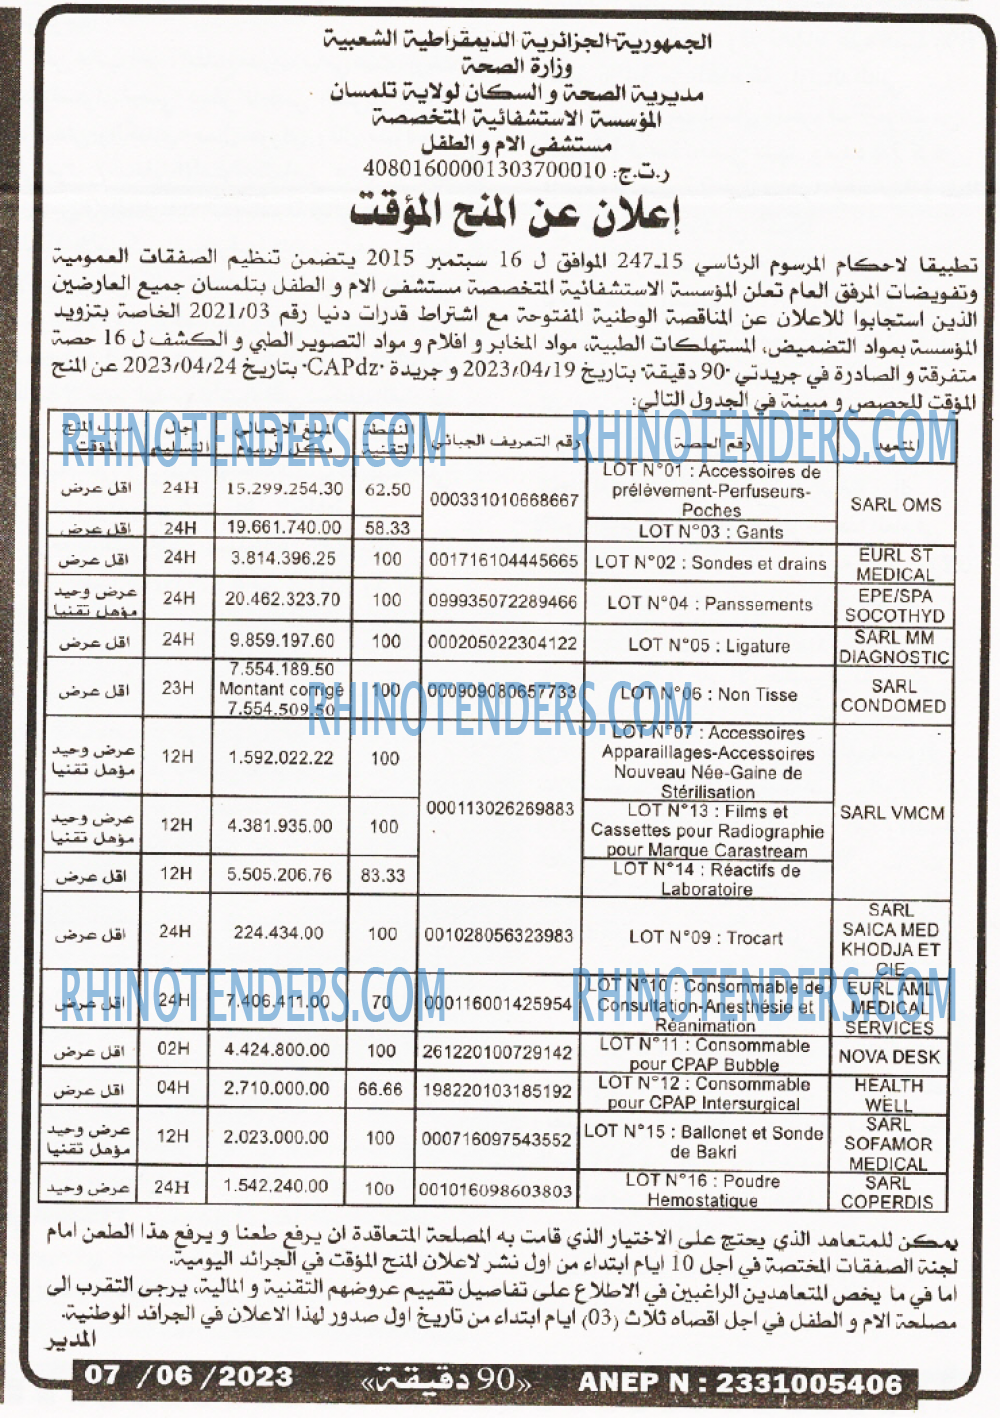 الجمهورية الجزائرية الديمقراطية الشعبية
وزارة الصحة
مديرية الصحة و السكان لولاية تلمسان
المؤسسة الاستشفائية المتخصصة
مستشفى الام و الطفل
ر.ت.ج: 40801600001303700010
إعلان عن المنح المؤقت
تطبيقا لاحكام المرسوم الرئاسي 15ـ247 الموافق ل 16 سبتمبر 2015 يتضمن تنظيم الصفقات العمومية
وتفويضات المرفق العام تعلن المؤسسة الاستشفائية المتخصصة مستشفى الام و الطفل بتلمسان جميع العارضين
الذين استجابوا للاعلان عن المناقصة الوطنية المفتوحة مع اشتراط قدرات دنيا رقم 2021/03 الخاصة بتزويد
المؤسسة بمواد التضميض، المستهلكات الطبية، مواد المخابر و افلام و مواد التصوير الطبي و الكشف ل 16 حصة
متفرقة و الصادرة في جريدتي "90 دقيقة" بتاريخ 2023/04/19 و جريدة "CAPdz" بتاريخ 2023/04/24 عن المنح
المؤقت للحصص و مبينة في الجدول التالي:
المتعهد | رقم الحصة | رقم التعريف الجبائي | النقطة التقنية | المبلغ الاجمالي بكل الرسوم | اجال التسليم | سبب المنح المؤقت
SARL OMS | LOT N°01 : Accessoires de prélèvement-Perfuseurs-Poches | 000331010668667 | 62.50 | 15.299.254.30 | 24H | اقل عرض
LOT N°03 : Gants | 58.33 | 19.661.740.00 | 24H | اقل عرض
EURL ST MEDICAL | LOT N°02 : Sondes et drains | 001716104445665 | 100 | 3.814.396.25 | 24H | اقل عرض
EPE/SPA SOCOTHYD | LOT N°04 : Panssements | 099935072289466 | 100 | 20.462.323.70 | 24H | عرض وحيد مؤهل تقنيا
SARL MM DIAGNOSTIC | LOT N°05 : Ligature | 000205022304122 | 100 | 9.859.197.60 | 24H | اقل عرض
SARL CONDOMED | LOT N°06 : Non Tisse | 000909080657733 | 100 | 7.554.189.50 Montant corrigé 7.554.509.50 | 23H | اقل عرض
SARL VMCM | LOT N°07 : Accessoires Apparaillages-Accessoires Nouveau Née-Gaine de Stérilisation | 000113026269883 | 100 | 1.592.022.22 | 12H | عرض وحيد مؤهل تقنيا
LOT N°13 : Films et Cassettes pour Radiographie pour Marque Carastream | 100 | 4.381.935.00 | 12H | عرض وحيد مؤهل تقنيا
LOT N°14 : Réactifs de Laboratoire | 83.33 | 5.505.206.76 | 12H | اقل عرض
SARL SAICA MED KHODJA ET CIE | LOT N°09 : Trocart | 001028056323983 | 100 | 224.434.00 | 24H | اقل عرض
EURL AML MEDICAL SERVICES | LOT N°10 : Consommable de Consultation-Anesthésie et Réanimation | 000116001425954 | 70 | 7.406.411.00 | 24H | اقل عرض
NOVA DESK | LOT N°11 : Consommable pour CPAP Bubble | 261220100729142 | 100 | 4.424.800.00 | 02H | اقل عرض
HEALTH WELL | LOT N°12 : Consommable pour CPAP Intersurgical | 198220103185192 | 66.66 | 2.710.000.00 | 04H | اقل عرض
SARL SOFAMOR MEDICAL | LOT N°15 : Ballonet et Sonde de Bakri | 000716097543552 | 100 | 2.023.000.00 | 12H | عرض وحيد مؤهل تقنيا
SARL COPERDIS | LOT N°16 : Poudre Hemostatique | 001016098603803 | 100 | 1.542.240.00 | 24H | عرض وحيد
يمكن للمتعاهد الذي يحتج على الاختيار الذي قامت به المصلحة المتعاقدة ان يرفع طعنا و يرفع هذا الطعن امام
لجنة الصفقات المختصة في اجل 10 ايام ابتداء من اول نشر لاعلان المنح المؤقت في الجرائد اليومية.
اما في ما يخص المتعاهدين الراغبين في الاطلاع على تفاصيل تقييم عروضهم التقنية و المالية، يرجى التقرب الى
مصلحة الام و الطفل في اجل اقصاه ثلاث (03) ايام ابتداء من تاريخ اول صدور لهذا الاعلان في الجرائد الوطنية.
المدير
ANEP N : 2331005406 «90 دقيقة» 07 /06 /2023
RHINOTENDERS.COM RHINOTENDERS.COM
RHINOTENDERS.COM
RHINOTENDERS.COM RHINOTENDERS.COM